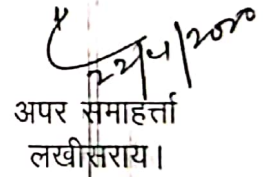 22/4/2020
अपर समाहर्त्ता
लखीसराय।